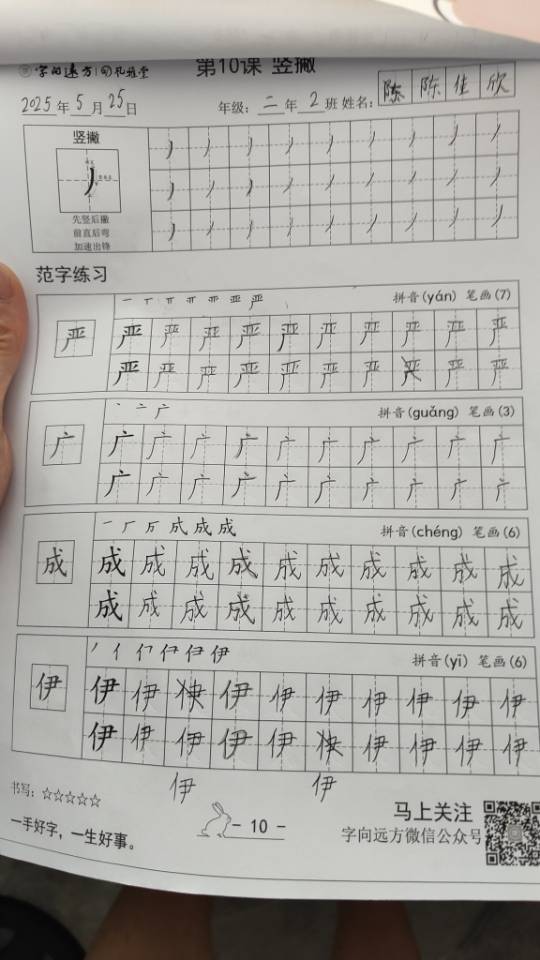 字向远方
第10课 竖撇
2025年5月25日 年级：二年2班 姓名：陈陈佳欣
竖撇
先竖后撇
前直后弯
加速出锋
范字练习
一 丆 严 拼音(yán) 笔画(7)
严 严 严 严 严 严 严 严 严 严 严
严 严 严 严 严 严 严 严 严
丶 亠 广 拼音(guǎng) 笔画(3)
广 广 广 广 广 广 广 广 广 广 广
广 广 广 广 广 广 广 广 广 广
一 厂 成 成 成 拼音(chéng) 笔画(6)
成 成 成 成 成 成 成 成 成 成 成
成 成 成 成 成 成 成 成 成 成
丿 亻 伊 拼音(yī) 笔画(6)
伊 伊 伊 伊 伊 伊 伊 伊 伊 伊
伊 伊 伊 伊 伊 伊 伊 伊 伊
伊 伊
书写：☆☆☆☆☆
一手好字，一生好事。
- 10 -
马上关注
字向远方微信公众号